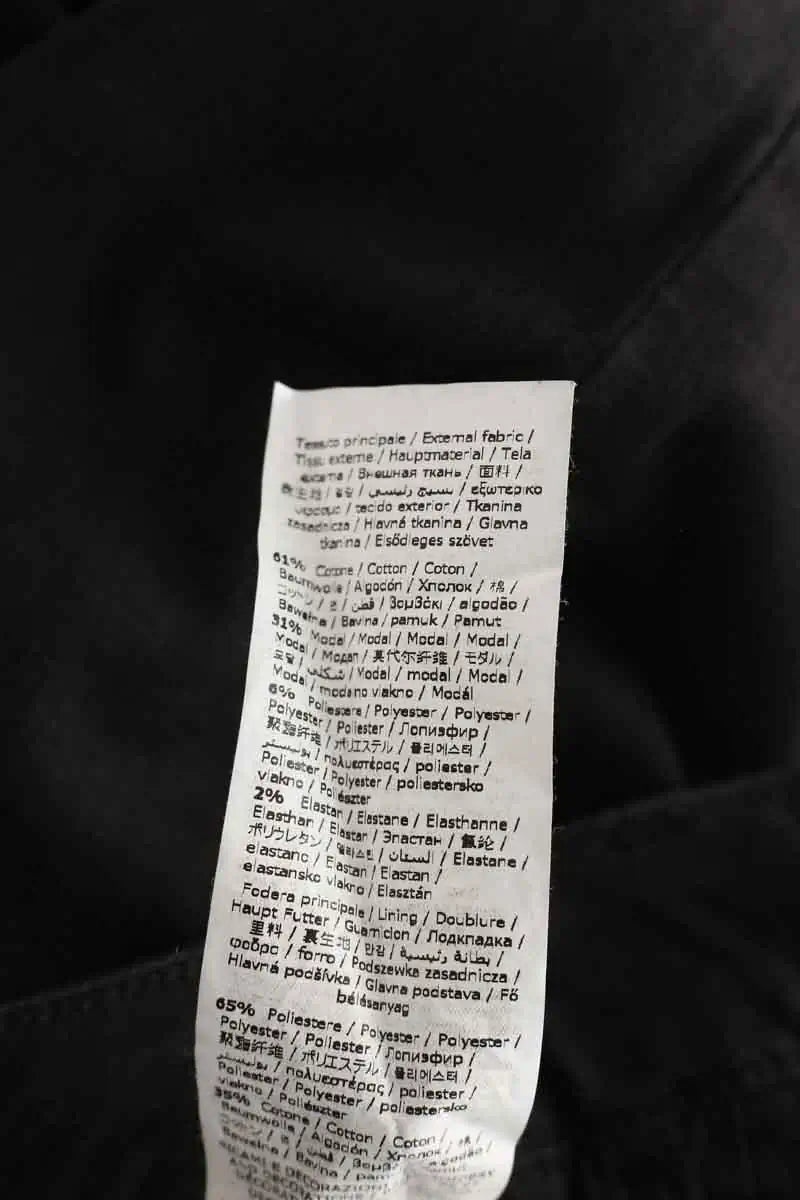 Tessuto principale / External fabric /
Tissu externe / Hauptmaterial / Tela
externa / Внешная ткань / 面料 /
表生地 / 겉감 / نسيج رئيسي / εξωτερικο
υφασμα / tecido exterior / Tkanina
zasadnicza / Hlavná tkanina / Glavna
tkanina / Elsődleges szövet
61% Cotone / Cotton / Coton /
Baumwolle / Algodón / Хлопок / 棉 /
コットン / 면 / قطن / Βαμβάκι / algodão /
Bawełna / Bavlna / pamuk / Pamut
31% Modal / Modal / Modal / Modal /
Modal / Модал / 莫代尔纤维 / モダル /
모달 / شكلي / Modal / modal / Modal /
Modal / modano vlakno / Modál
6% Poliestere / Polyester / Polyester /
Polyester / Poliester / Лолиэфир /
聚酯纤维 / ポリエステル / 폴리에스터 /
بوليستر / πολυεστέρας / poliester /
Poliester / Polyester / poliestersko
vlakno / Poliészter
2% Elastan / Elastane / Elasthanne /
Elasthan / Elastan / Эластан / 氨纶 /
ポリウレタン / 엘라스틴 / الستان / Elastane /
elastano / Elastan / Elastan /
elastansko vlakno / Elasztán
Fodera principale / Lining / Doublure /
Haupt Futter / Guarnicion / Лодкладка /
里料 / 裏生地 / 안감 / بطانة رئيسية /
φοδρα / forro / Podszewka zasadnicza /
Hlavná podšívka / Glavna podstava / Fő
bélésanyag
65% Poliestere / Polyester / Polyester /
Polyester / Poliester / Лолиэфир /
聚酯纤维 / ポリエステル / 폴리에스터 /
بوليستر / πολυεστέρας / poliester /
Poliester / Polyester / poliestersko
vlakno / Poliészter
35% Cotone / Cotton / Coton /
Baumwolle / Algodón / Хлопок / 棉 /
コットン / 면 / قطن / Βαμβ / algodão /
Bawełna / Bavlna / pam
RICAMI E DECORAZIONI
AND DECORATIONS
DÉCORATIONS